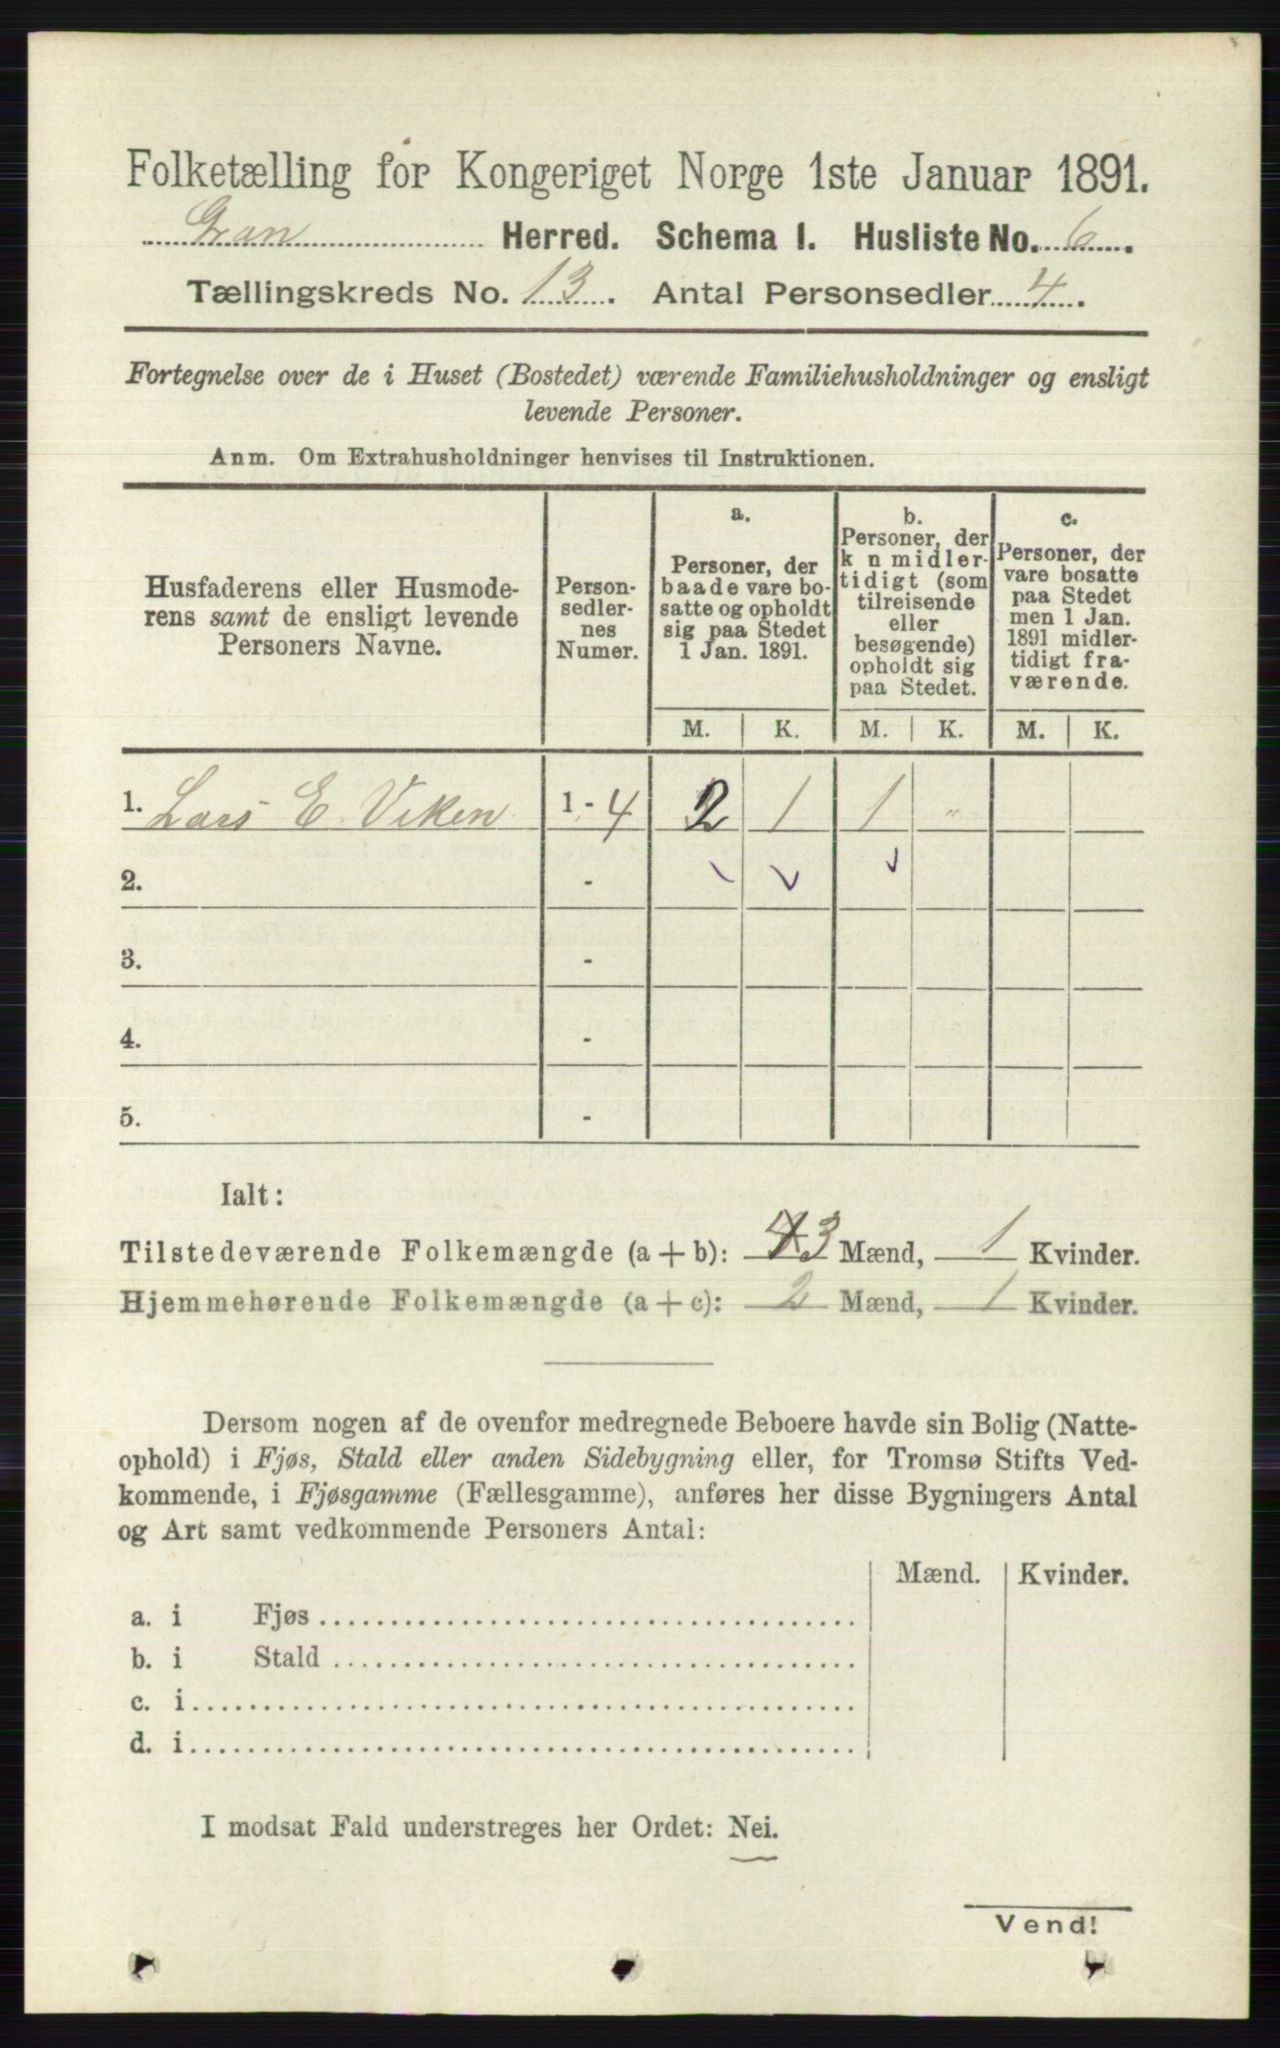 Folketælling for Kongeriget Norge 1ste Januar 1891.
Gran Herred. Schema I. Husliste No. 6.
Tællingskreds No. 13. Antal Personsedler 4.
Fortegnelse over de i Huset (Bostedet) værende Familiehusholdninger og ensligt
levende Personer.
Anm. Om Extrahusholdninger henvises til Instruktionen.
Husfaderens eller Husmode-
rens samt de ensligt levende
Personers Navne.
Person-
sedler-
nes
Numer.
a.
Personer, der
baade vare bo-
satte og opholdt
sig paa Stedet
1 Jan. 1891.
b.
Personer, der
k n midler-
tidigt (som
tilreisende
eller
besøgende)
opholdt sig
paa Stedet.
c.
Personer, der
vare bosatte
paa Stedet
men 1 Jan.
1891 midler-
tidigt fra-
værende.
M. K. M. K. M. K.
1. Lars E. Viken 1 - 4 2 1 1 "
2. -
3. -
4. -
5. -
Ialt:
Tilstedeværende Folkemængde (a + b): 3 Mænd, 1 Kvinder.
Hjemmehørende Folkemængde (a + c): 2 Mænd, 1 Kvinder.
Dersom nogen af de ovenfor medregnede Beboere havde sin Bolig (Natte-
ophold) i Fjøs, Stald eller anden Sidebygning eller, for Tromsø Stifts Ved-
kommende, i Fjøsgamme (Fællesgamme), anføres her disse Bygningers Antal
og Art samt vedkommende Personers Antal:
Mænd. Kvinder.
a. i Fjøs
b. i Stald
c. i
d. i
I modsat Fald understreges her Ordet: Nei.
Vend!